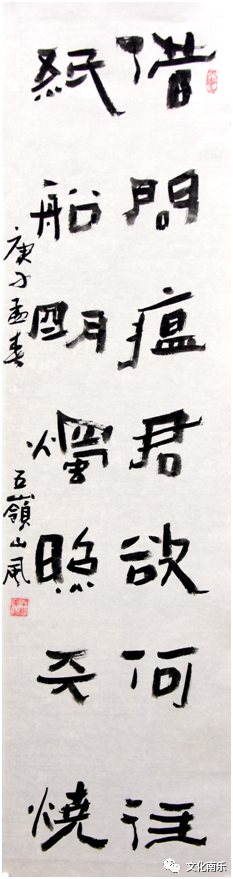 借問瘟君欲何往
紙船朙燭照天燒
庚子孟春 五嶺山風
文化南乐